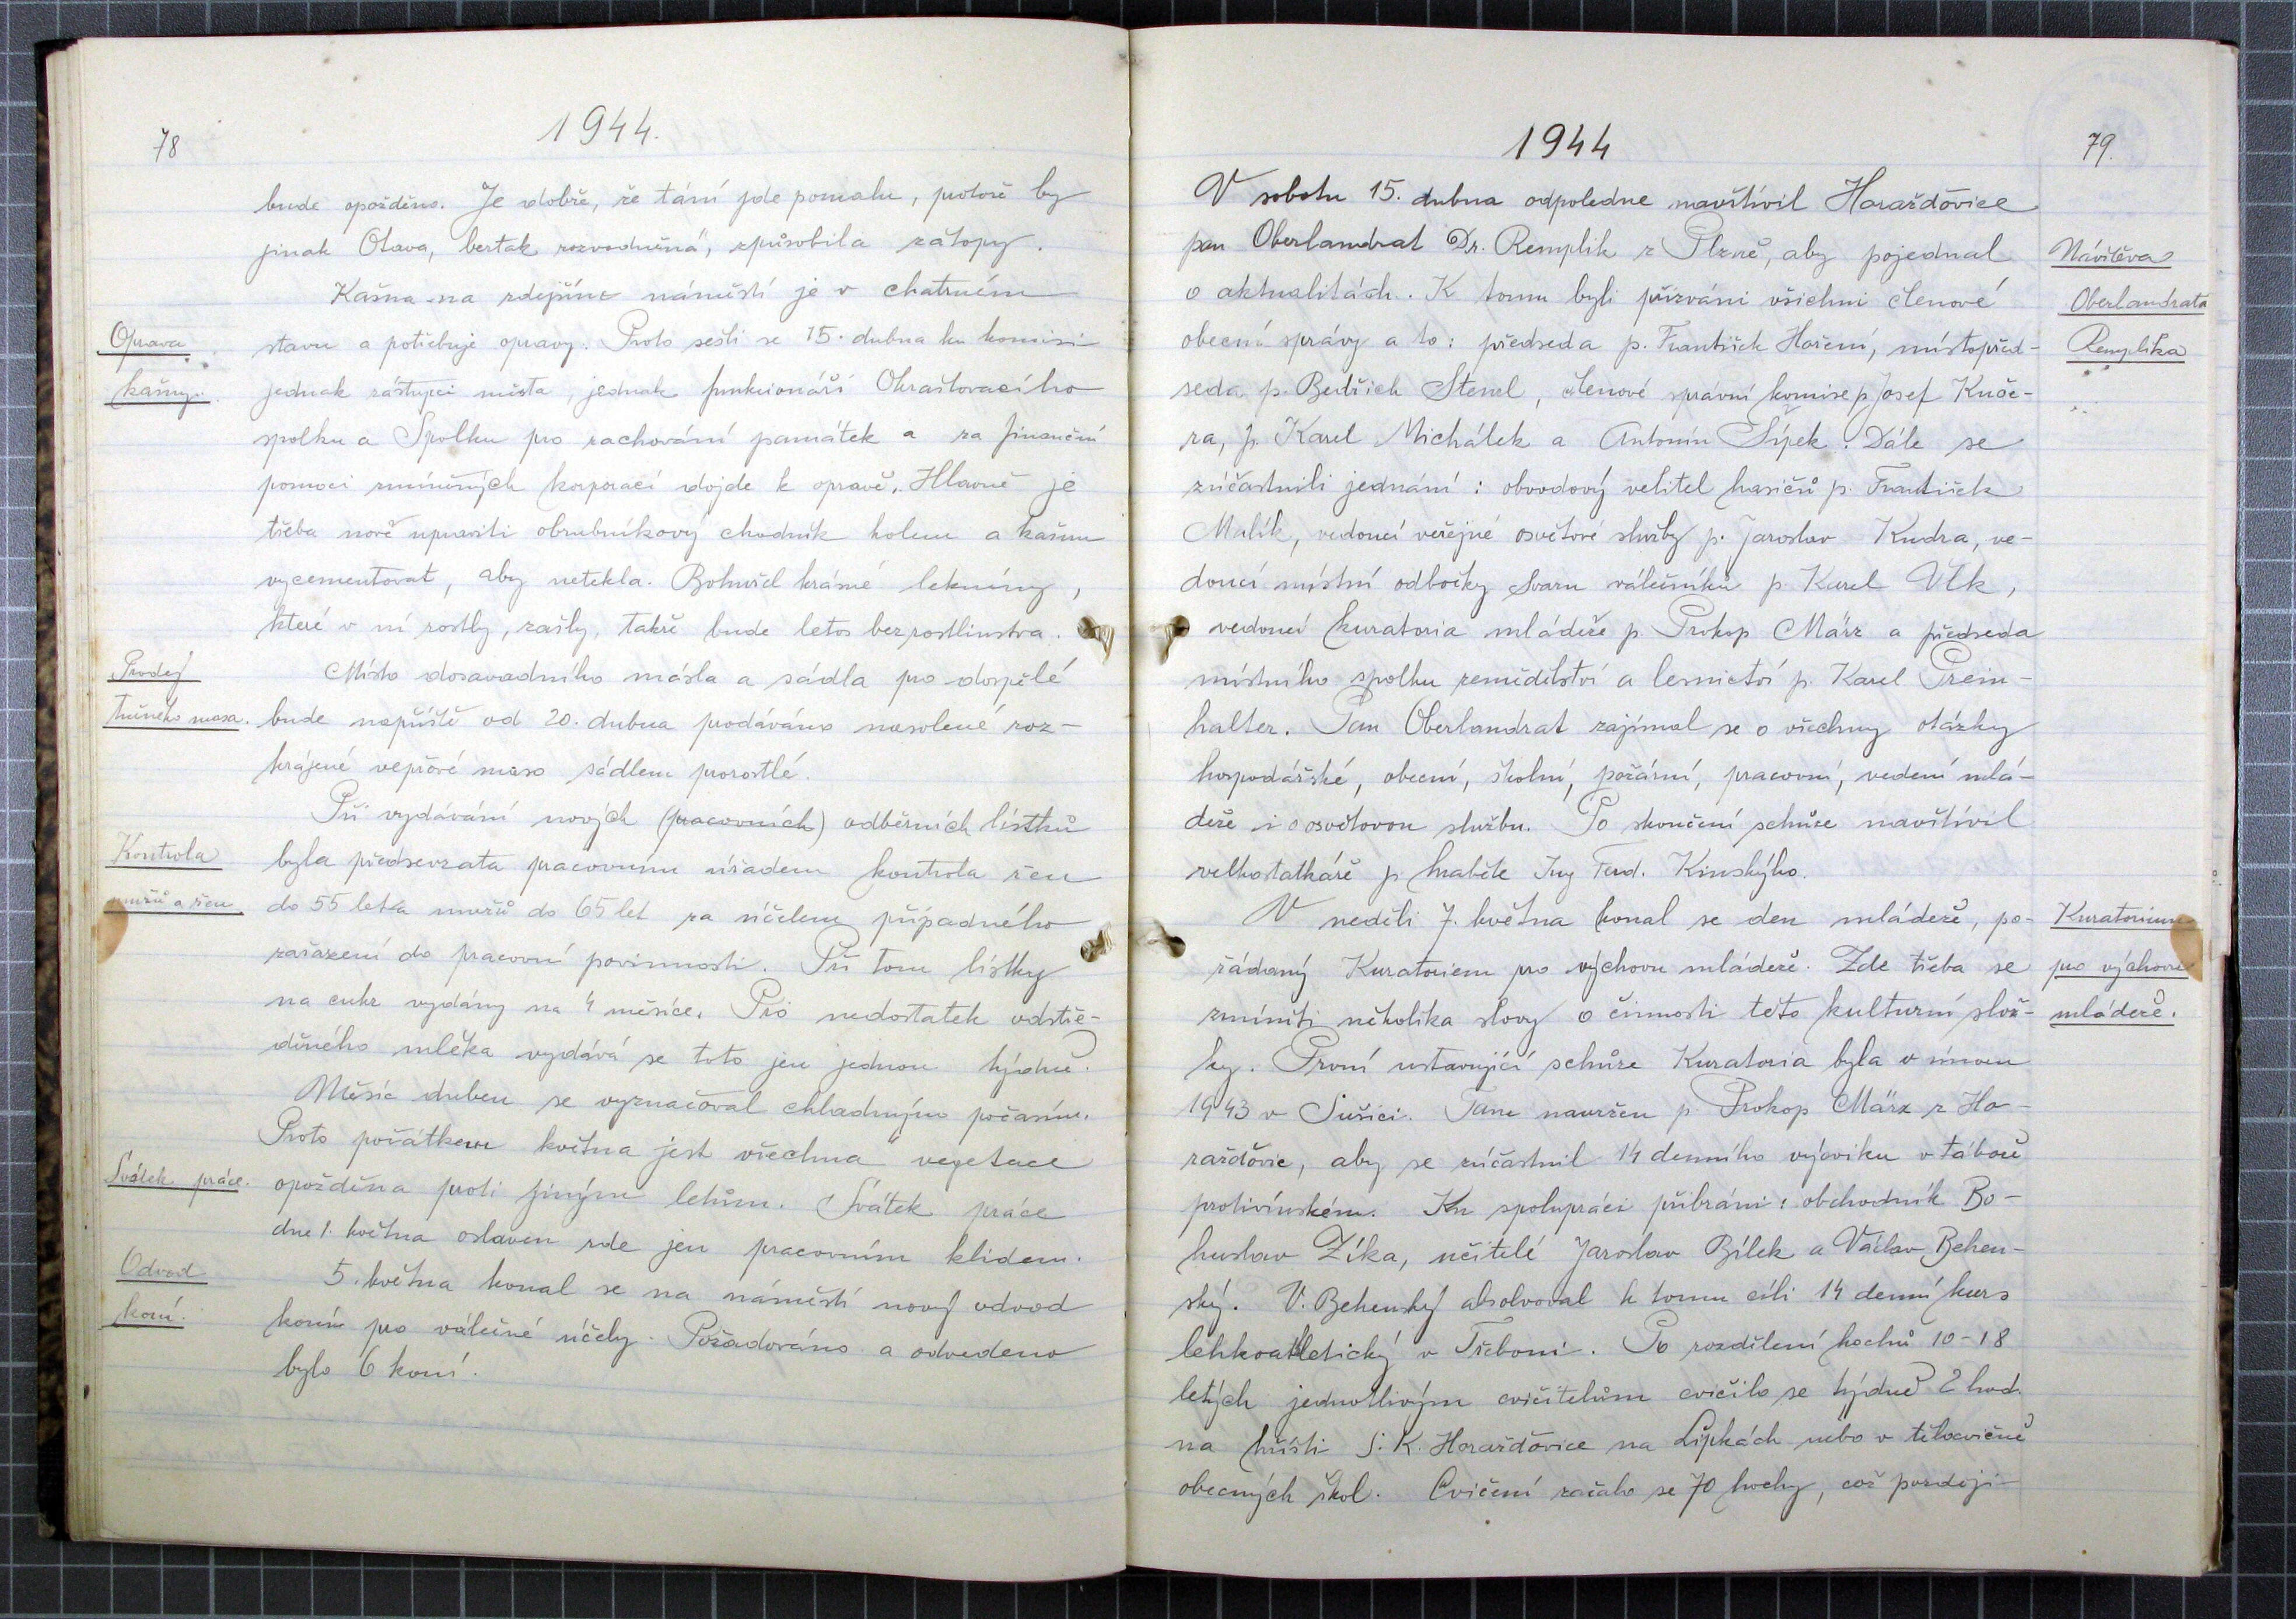 78
1944.
bude opožděno. Je dobře, že tání jde pomalu, protože by
jinak Otava, beztak rozvodněná, způsobila zátopy.
Kašna na zdejším náměstí je v chatrném
Oprava
kašny.
stavu a potřebuje opravy. Proto sešli se 15. dubna ku komisi
jednak zástupci města, jednak funkcionáři Okrašlovacího
spolku a Spolku pro zachování památek a za finanční
pomoci zmíněných korporací dojde k opravě. Hlavně je
třeba nově upraviti obrubníkový chodník kolem a kašnu
vycementovat, aby netekla. Bohužel krásné lekníny,
které v ní rostly, zašly, takže bude letos bez rostlinstva.
Prodej
tučného masa.
Místo dosavadního másla a sádla pro dospělé
bude napříště od 20. dubna prodáváno nasolené roz-
krájené vepřové maso sádlem prorostlé.
Při vydávání nových (pracovních) odběrních lístků
Kontrola
mužů a žen.
byla předsevzata pracovním úřadem kontrola žen
do 55 let a mužů do 65 let za účelem případného
zařazení do pracovní povinnosti. Při tom lístky
na cukr vydány na 4 měsíce. Pro nedostatek odstře-
děného mléka vydává se toto jen jednou týdně.
Měsíc duben se vyznačoval chladným počasím.
Proto počátkem května jest všechna vegetace
Svátek práce.
opožděna proti jiným letům. Svátek práce
dne 1. května oslaven zde jen pracovním klidem.
Odvod
koní.
5. května konal se na náměstí nový odvod
koním pro válečné účely. Požadováno a odvedeno
bylo 6 koní.
1944
79.
V sobotu 15. dubna odpoledne navštívil Horažďovice
pan Oberlandrat Dr. Remplik z Plzně, aby pojednal
Návštěva
Oberlandrata
Remplika
o aktualitách. K tomu byli přizváni všichni členové
obecní správy a to: předseda p. František Hoření, místopřed-
seda p. Bedřich Stenzl, členové správní komise p. Josef Kuče-
ra, p. Karel Michálek a Antonín Šípek. Dále se
zúčastnili jednání: obvodový velitel hasičů p. František
Malík, vedoucí veřejné osvětové služby p. Jaroslav Kudra, ve-
doucí místní odbočky Svazu válečníků p. Karel Vlk,
vedoucí Kuratoria mládeže p. Prokop März a předseda
místního spolku zemědělství a lesnictví p. Karel Prein-
halter. Pan Oberlandrat zajímal se o všechny otázky
hospodářské, obecní, školní, požární, pracovní, vedení mlá-
deže i o osvětovou službu. Po skončení schůze navštívil
velkostatkáře p. hraběte Ing Ferd. Kinského.
V neděli 7. května konal se den mládeže, po-
Kuratorium
pro výchovu
mládeže.
řádaný Kuratoriem pro výchovu mládeže. Zde třeba se
zmíniti několika slovy o činnosti této kulturní slož-
ky. První ustavující schůze Kuratoria byla v únoru
1943 v Sušici. Tam navržen p. Prokop März z Ho-
ražďovic, aby se zúčastnil 14 denního výcviku v táboře
protivínském. Ku spolupráci přibráni: obchodník Bo-
huslav Zíka, učitelé Jaroslav Bílek a Václav Behen-
ský. V. Behenský absolvoval k tomu cíli 14 denní kurs
lehkoatletický v Třeboni. Po rozdělení hochů 10-18
letých jednotlivým cvičitelům cvičilo se týdně 2 hod.
na hřišti S. K. Horažďovice na Lipkách nebo v tělocvičně
obecných škol. Cvičení začalo se 70 hochy, což později